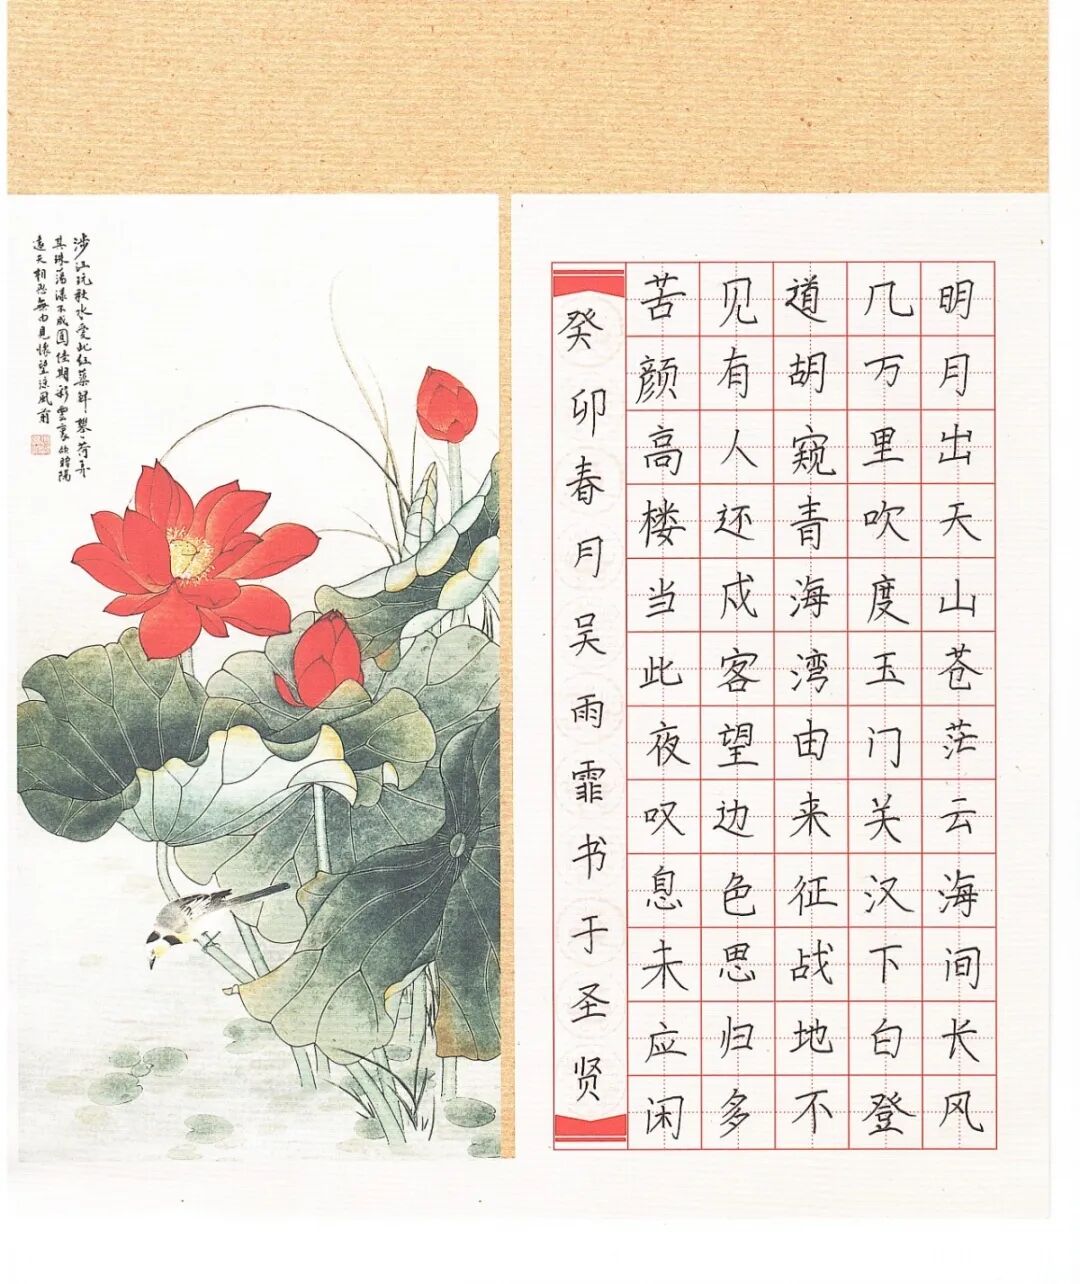 明月出天山苍茫云海间长风
几万里吹度玉门关汉下白登
道胡窥青海湾由来征战地不
见有人还戍客望边色思归多
苦颜高楼当此夜叹息未应闲
癸卯春月吴雨霏书于圣贤
涉江玩秋水愛此红蕖鲜攀荷弄
其珠蕩漾不成圓佳期彩雲裏欲贈隔
遠天相思無由見悵望凉風前